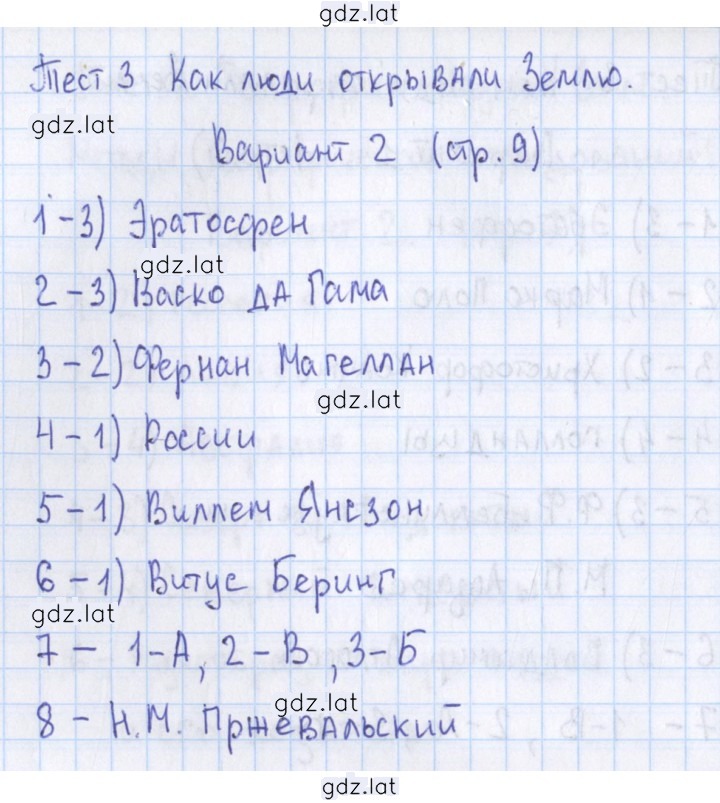 gdz.lat
Тест 3 Как люди открывали Землю.
gdz.lat
Вариант 2 (стр. 9)
1 – 3) Эратосфен
gdz.lat
2 – 3) Васко да Гама
3 – 2) Фернан Магеллан
gdz.lat
4 – 1) России
5 – 1) Виллем Янсзон
6 – 1) Витус Беринг
gdz.lat
7 – 1 – А, 2 – В, 3 – Б
gdz.lat
8 – Н.М. Пржевальский
gdz.lat